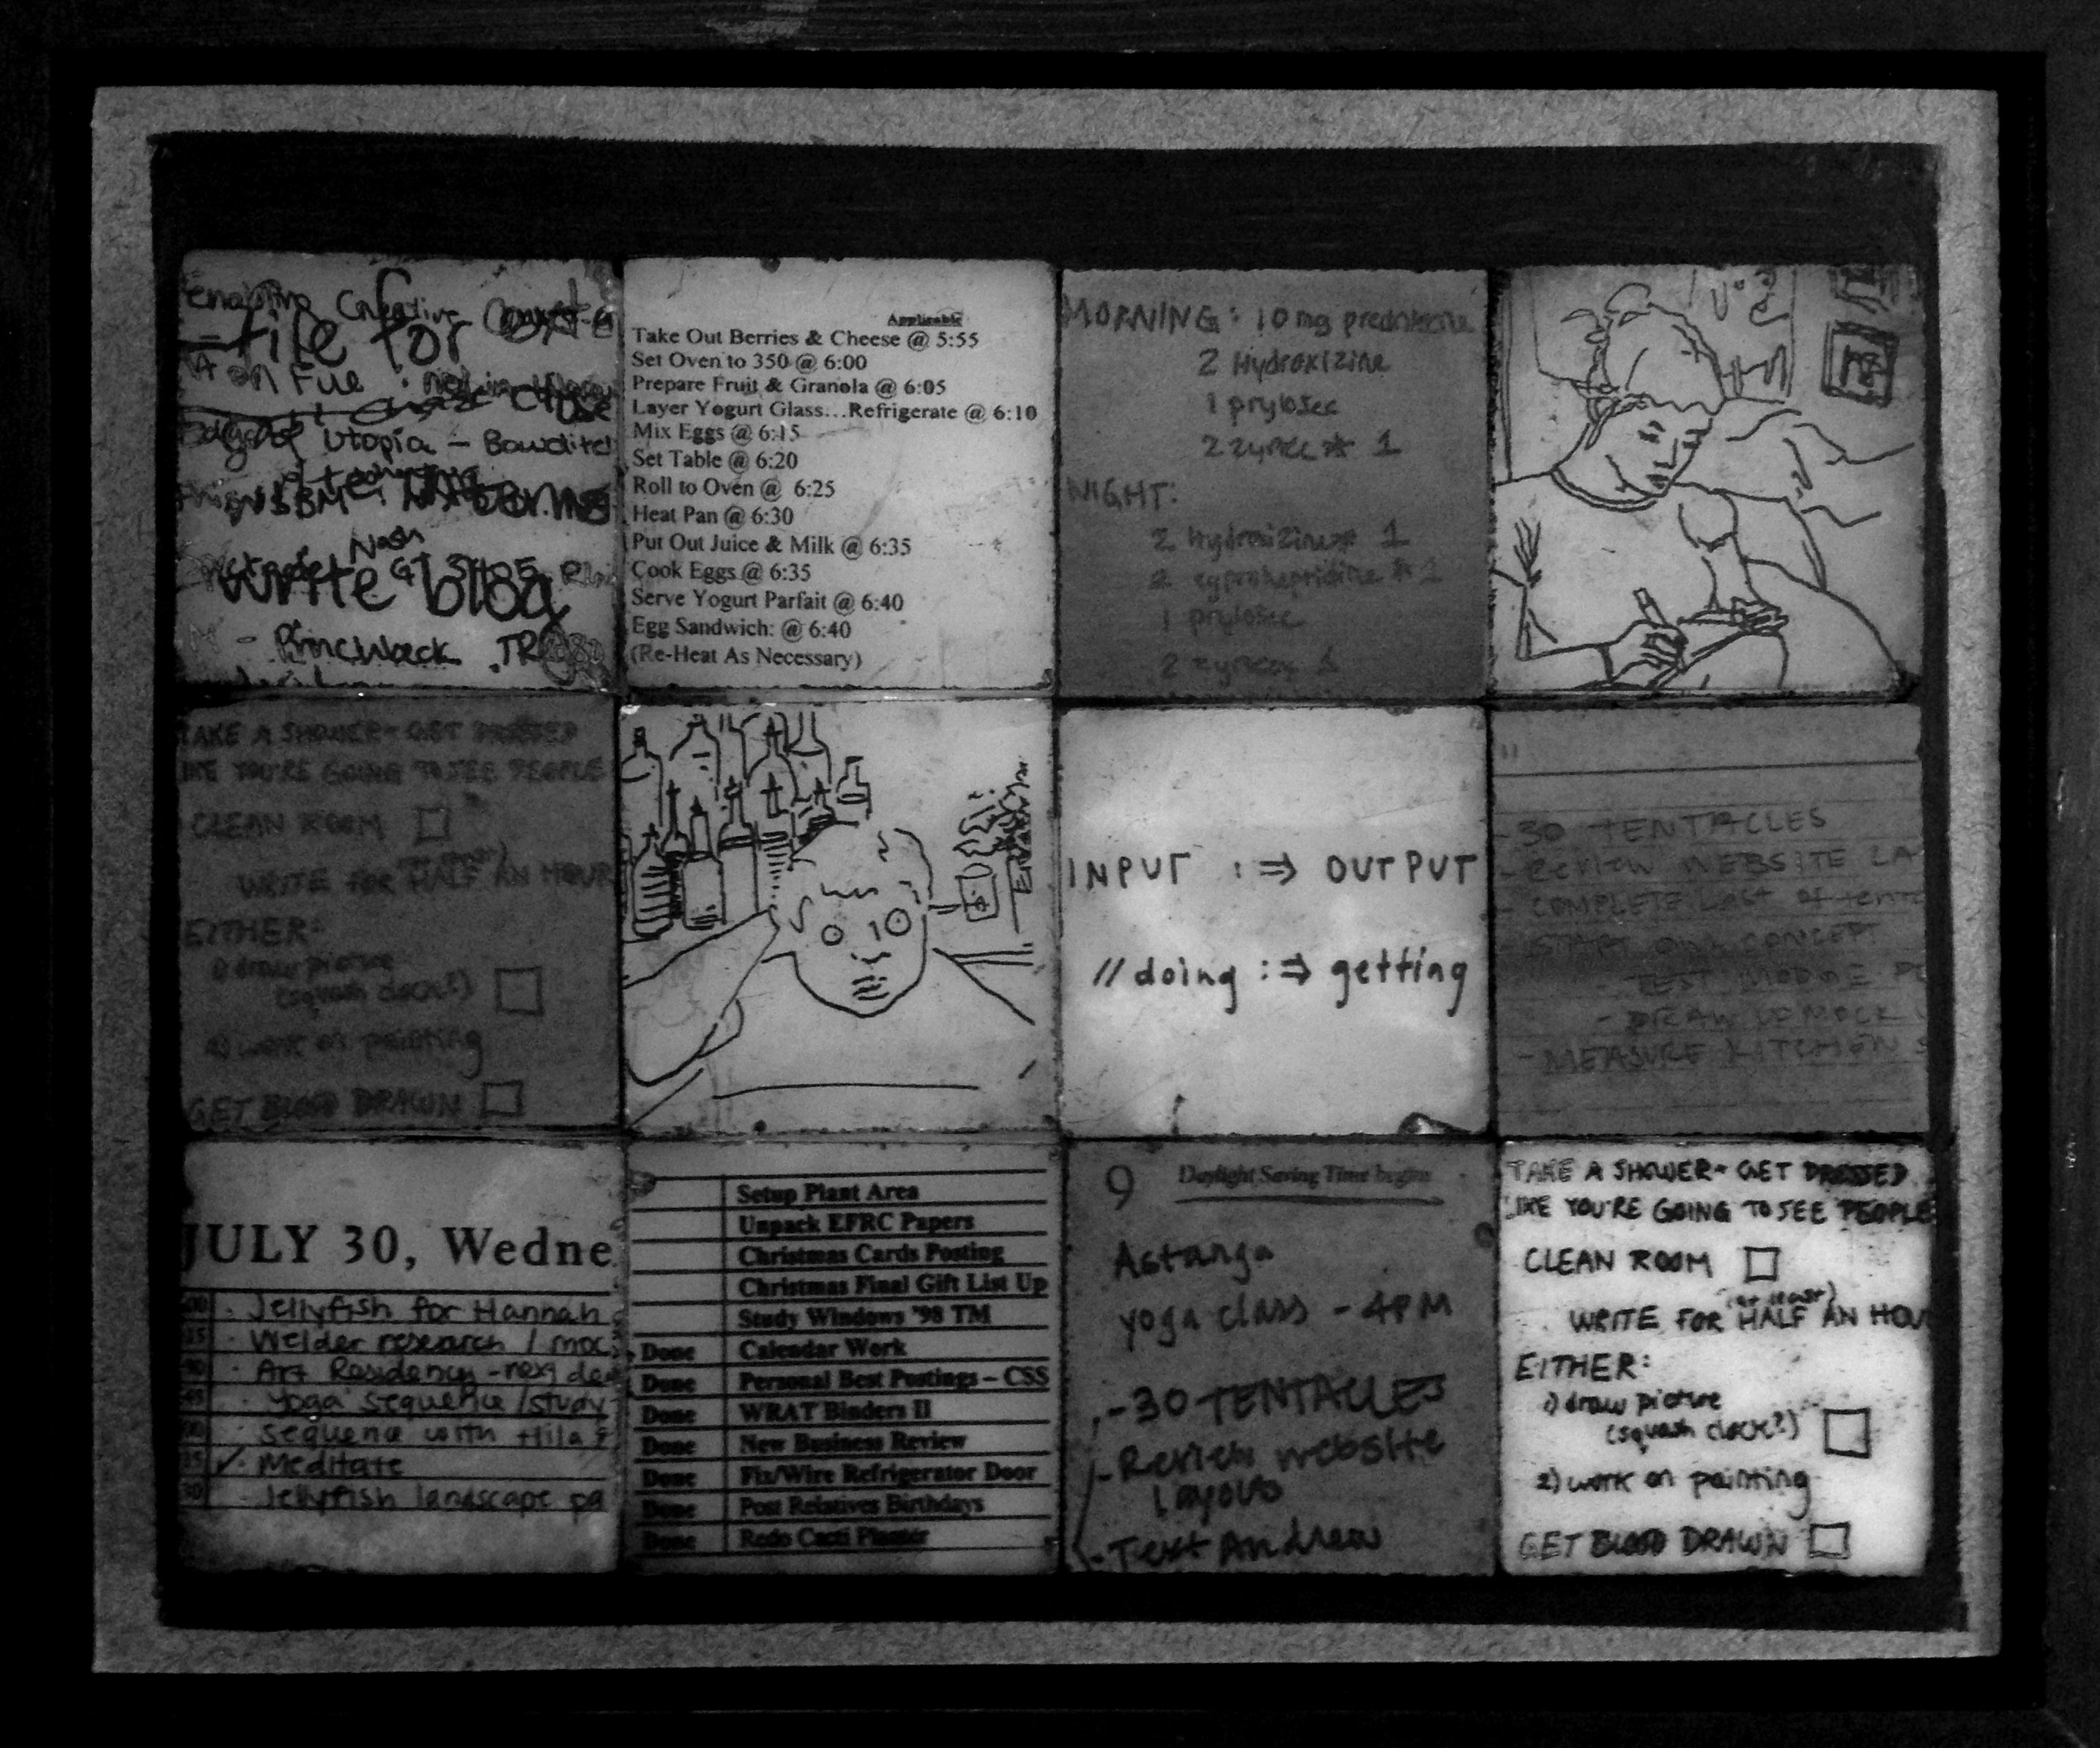 enabling Creative
file for
Utopia – Bowditch
write blog
Nash
Applicable
Take Out Berries & Cheese @ 5:55
Set Oven to 350 @ 6:00
Prepare Fruit & Granola @ 6:05
Layer Yogurt Glass...Refrigerate @ 6:10
Mix Eggs @ 6:15
Set Table @ 6:20
Roll to Oven @ 6:25
Heat Pan @ 6:30
Put Out Juice & Milk @ 6:35
Cook Eggs @ 6:35
Serve Yogurt Parfait @ 6:40
Egg Sandwich: @ 6:40
(Re-Heat As Necessary)
MORNING: 10 mg
2 Hydroxizine
1 prylosec
2 zyrtec * 1
NIGHT:
2 Hydroxizine * 1
2 cyproheptidine * 1
1 prylosec
2 zyrtec 1
TAKE A SHOWER - GET DRESSED
LIKE YOU'RE GOING TO SEE PEOPLE
CLEAN ROOM
(at least)
WRITE FOR HALF AN HOUR
EITHER:
1) draw picture
(squash clock?)
2) work on painting
GET BLOOD DRAWN
INPUT :⇒ OUTPUT
// doing :⇒ getting
- 30 TENTACLES
- REVIEW WEBSITE LA
- COMPLETE Last of tent
- START OWL CONCEPT
- DRAW UP MOCK
- MEASURE KITCHEN S
JULY 30, Wedne
· Jellyfish for Hannah
· Welder research / moc
· Art Residency - next de
· Yoga sequence / study
· sequence with Hila
✓ · Meditate
· Jellyfish landscape pa
Setup Plant Area
Unpack EFRC Papers
Christmas Cards Posting
Christmas Final Gift List Up
Study Windows '98 TM
Done Calendar Work
Done Personal Best Postings – CSS
Done WRAT Binders II
Done New Business Review
Done Fix/Wire Refrigerator Door
Done Post Relatives Birthdays
Done Redo Cacti Planter
9 Daylight Saving Time begins
Astanga
yoga class - 4PM
- 30 TENTACLES
- Review website
layouts
- Text Andrew
TAKE A SHOWER - GET DRESSED
LIKE YOU'RE GOING TO SEE PEOPLE
CLEAN ROOM
(at least)
WRITE FOR HALF AN HOU
EITHER:
1) draw picture
(squash clock?)
2) work on painting
GET BLOOD DRAWN